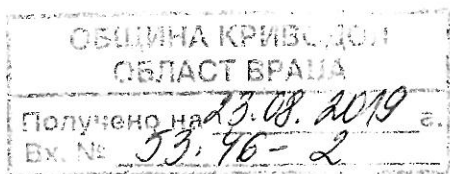 ОБЩИНА КРИВОДОЛ
ОБЛАСТ ВРАЦА
Получено на 23.08.2019 г.
Вх. № 53.96-2